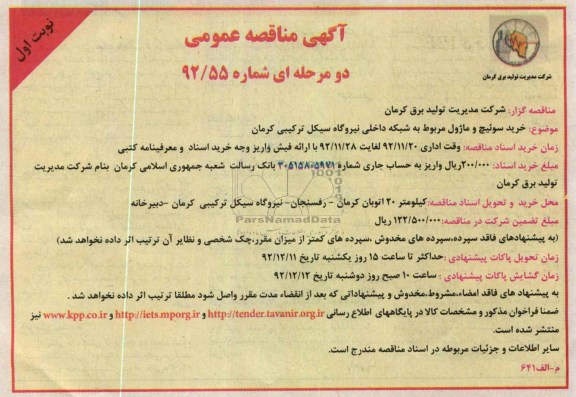 نوبت اول
شرکت مدیریت تولید برق کرمان
آگهی مناقصه عمومی
دو مرحله ای شماره ۹۲/۵۵
مناقصه گزار: شرکت مدیریت تولید برق کرمان
موضوع: خرید سوئیچ و ماژول مربوط به شبکه داخلی نیروگاه سیکل ترکیبی کرمان
زمان خرید اسناد مناقصه: وقت اداری ۹۲/۱۱/۲۰ لغایت ۹۲/۱۱/۲۸ با ارائه فیش واریز وجه خرید اسناد و معرفینامه کتبی
مبلغ خرید اسناد: ۲۰۰/۰۰۰ ریال واریز به حساب جاری شماره ۳۰۵۱۵۸۰۵۹۷۱ بانک رسالت شعبه جمهوری اسلامی کرمان بنام شرکت مدیریت
تولید برق کرمان
محل خرید و تحویل اسناد مناقصه: کیلومتر ۱۲۰ اتوبان کرمان - رفسنجان - نیروگاه سیکل ترکیبی کرمان - دبیرخانه
مبلغ تضمین شرکت در مناقصه: ۱۲۲/۵۰۰/۰۰۰ ریال
(به پیشنهادهای فاقد سپرده، سپرده های مخدوش، سپرده های کمتر از میزان مقرر، چک شخصی و نظایر آن ترتیب اثر داده نخواهد شد)
زمان تحویل پاکات پیشنهادی: حداکثر تا ساعت ۱۵ روز یکشنبه تاریخ ۹۲/۱۲/۱۱
زمان گشایش پاکات پیشنهادی: ساعت ۱۰ صبح روز دوشنبه تاریخ ۹۲/۱۲/۱۲
به پیشنهاد های فاقد امضاء، مشروط، مخدوش و پیشنهاداتی که بعد از انقضاء مدت مقرر واصل شود مطلقا ترتیب اثر داده نخواهد شد.
ضمنا فراخوان مذکور و مشخصات کالا در پایگاههای اطلاع رسانی http://tender.tavanir.org.ir و http://iets.mporg.ir و www.kpp.co.ir نیز
منتشر شده است.
سایر اطلاعات و جزئیات مربوطه در اسناد مناقصه مندرج است.
م-الف ۶۴۱
ParsNamadData